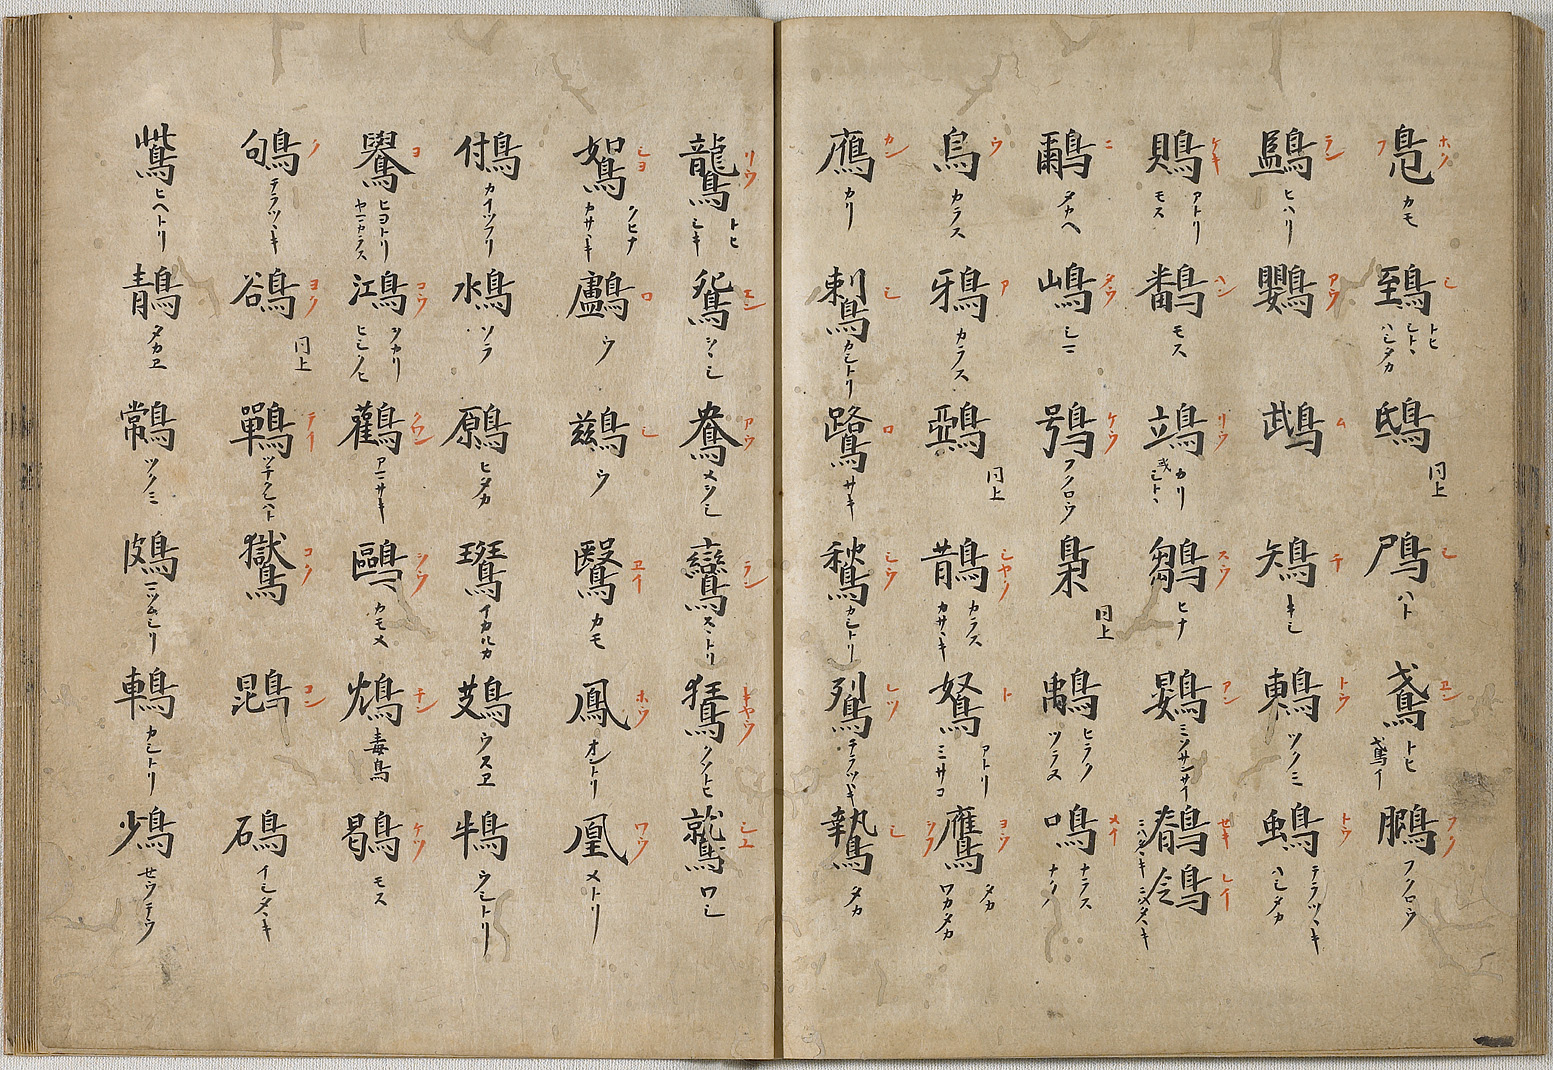 鳬 ホク フ カモ 鵄 シ トヒ シトヽ ハシタカ 鴟 同上 鳲 シ ハト 鳶 ヱン トヒ 鵬 フク フクロウ
ラン ヒハリ 鸚 アウ 鵡 ム 鴙 チ キシ 鶇 トウ ツクミ トウ テラツヽキ ハシタカ
鵙 ケキ アトリ モス 鷭 ハン モス 鴗 リウ カリ 或シトヽ 鶵 スウ ヒナ 鷃 アン ミソサヽイ 鶺鴒 セキ レイ ニハタヽキ
鸍 ニ タカヘ 嶋 タウ シマ 鴞 ケウ フクロウ 梟 同上 ヒラク ツラス 鳴 メイ ナラス ナク
烏 ウ カラス 鴉 ア カラス 鵶 同上 鵲 シヤク カラス カサヽキ 鴑 ト アトリ ミサコ 鷹 ヨウ ヲウ タカ ワカタカ
鴈 カン カリ シ カシトリ 鷺 ロ サキ 鶖 シウ カシトリ 鴷 レツ テラツヽキ 鷙 シ タカ
鸗 リウ トヒ シキ 鴛 エン シヽシ 鴦 アウ メシヽシ 鸞 ラン スヽトリ 鵟 キヤウ クソトヒ 鷲 シユ ワシ
鴽 シヨ クヒナ カサヽキ 鸕 ロ ウ 鷀 シ ウ 鷖 ヱイ カモ 鳳 ホウ オントリ 凰 ワウ メトリ
カイツフリ ソラ 鶢 ヒタカ イカルカ ウスヱ ウシトリ
鸒 ヨ ヒヨトリ ヤマカラス 鴻 コウ ツカリ ヒシクヒ 鸛 クワン アマサキ 鷗 カモメ 鴆 チン 毒鳥 鶡 ケツ モス
鴝 ク テラツヽキ 鵒 ヨク 同上 鷤 テイ ツチクレハト 鸑 コク 鵾 コン イシタヽキ
鴜 ヒヘトリ 鶄 タカヱ ツクミ カシトリ セウテウ